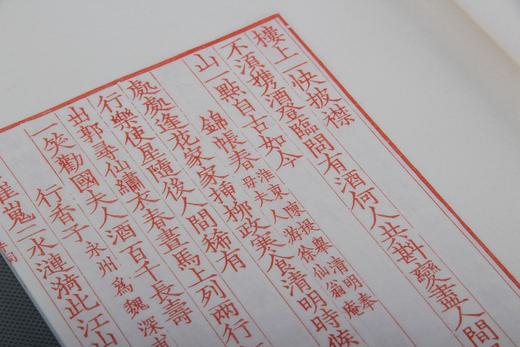 樓上一快披襟
不須攜酒登臨問有酒何人共斟變盡人間
山一點自古如今
錦帳春 淮東陳提舉清明奉
母夫人遊徐仙翁庵
處處逢花家家插柳政寒食清明時候
行樂使星隨後人間稀有
出郭尋仙繡衣春晝馬上列兩行
一笑勸國夫人酒百千長壽
行香子 永州為魏深甫
嵬二水漣漪此江山